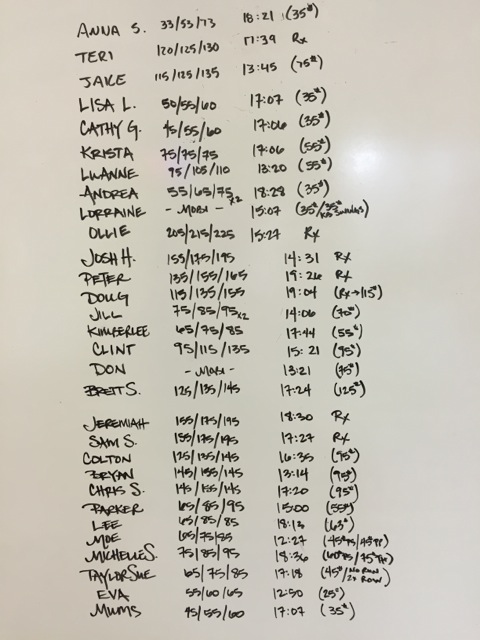 ANNA S. 33/53/73 18:21 (35#)
TERI 120/125/130 17:39 Rx
JAKE 115/125/135 13:45 (75#)
LISA L. 50/55/60 17:07 (35#)
CATHY G. 45/55/60 17:06 (35#)
KRISTA 75/75/75 17:06 (55#)
LUANNE 95/105/110 13:20 (55#)
ANDREA 55/65/75x2 18:28 (35#)
LORRAINE - MOBI - 15:07 (35#/35#
OLLIE 205/215/225 15:27 Rx
JOSH H. 155/175/195 14:31 Rx
PETER 135/155/165 19:26 Rx
DOUG 115/135/155 19:04 (Rx→115#)
JILL 75/85/95x2 14:06 (70#)
KIMBERLEE 65/75/85 17:44 (55#)
CLINT 95/115/135 15:21 (95#)
DON - MOBI - 13:21 (75#)
BRETT S. 125/135/145 17:24 (125#)
JEREMIAH 155/175/195 18:30 Rx
SAM S. 155/175/195 17:27 Rx
COLTON 125/135/145 16:35 (95#)
BRYAN 145/155/145 13:14 (95#)
CHRIS S. 145/155/145 17:20 (95#)
PARKER 65/85/95 15:00 (55#)
LEE 65/85/85 18:13 (63#)
MOE 65/75/85 12:27
MICHELLE S. 75/85/95 18:36
TAYLOR SUE 65/75/85 17:18 (45#/NO RUN
2X ROW)
EVA 55/60/65 12:50 (25#)
MUMS 45/55/60 17:07 (35#)